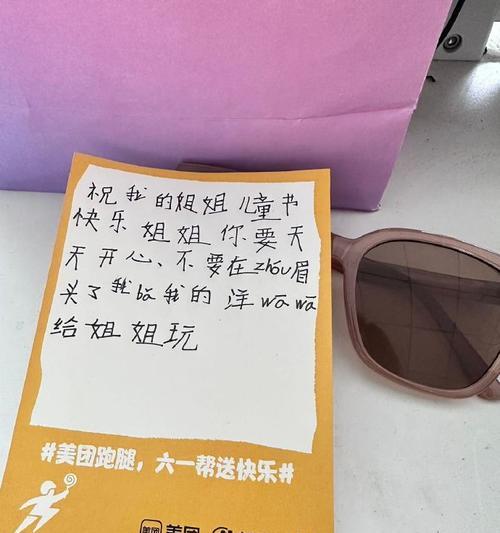 祝我的姐姐儿童书
快乐姐姐你要天
天开心、不要在zhòu眉
头了我bǎ我的洋wāwā
给姐姐玩
#美团跑腿，六一帮送快乐#
美团 美团